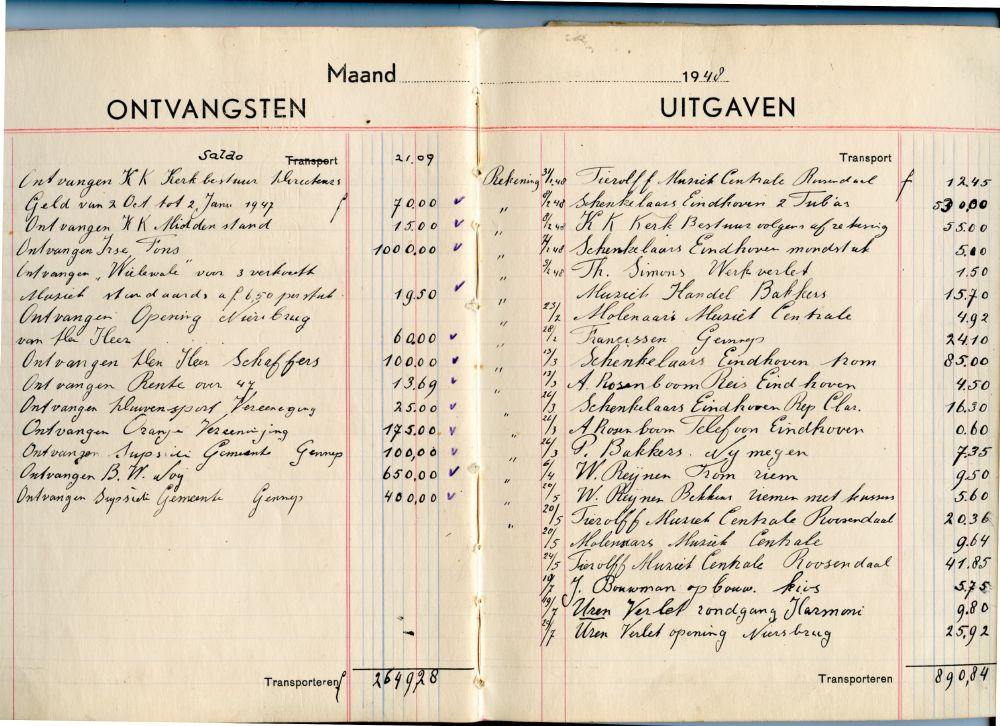 Maand 1948
ONTVANGSTEN
Saldo Transport 21.09
Ontvangen KK Kerkbestuur
Geld van 2 Oct tot 2 Janu 1947 f 70.00
Ontvangen KK Middenstand 15.00
Ontvangen Fons 1000.00
Ontvangen "Wielewale" voor 3 verkocht
Muziek standaards a f 6.50 per stuk 19.50
Ontvangen Opening Niersbrug
van Den Heer 60.00
Ontvangen Den Heer Schaffers 100.00
Ontvangen Rente over 47 13.69
Ontvangen Duivensport Vereeneging 25.00
Ontvangen Oranje Vereeniging 175.00
Ontvangen Supsidi Gemeente Gennep 100,00
Ontvangen B. W. Noij 650,00
Ontvangen Supsidi Gemeente Gennep 400,00
Transporteren f 2649,28
UITGAVEN
Transport
Rekening 31/1 48 Tierolff Muziek Centrale Rosendaal f 12.45
" 9/2 48 Schenkelaars Eindhoven 2 Tubias 530.00
" 9/2 48 KK Kerk Bestuur volgens afrekening 55.00
" 48 Schenkelaars Eindhoven mondstuk 5.00
" 9/2 48 Th. Simons Werkverlet 1.50
" Muziek Handel Bakkers 15.70
" 23/2 Molenaars Muziek Centrale 4.92
" 28/2 Francissen Gennep 24.10
" 13/3 Schenkelaars Eindhoven trom 85.00
" 13/3 A. Rosenboom Reis Eindhoven 4.50
" 26/3 Schenkelaars Eindhoven Rep Clar. 16.30
26/3 A Rosenboom Telefoon Eindhoven 0.60
" 26/3 P. Bakkers. Nymegen 7.35
" 6/4 W. Reijnen Trom riem 9.50
" 20/5 W. Reynen Bekkens riemen met kussens 5.60
" 20/5 Tierolff Muziek Centrale Roosendaal 20.36
20/5 Molenaars Muziek Centrale 9.64
24/5 Tierolff Muziek Centrale Roosendaal 41.85
19/7 J. Bouwman opbouw. kios 5.75
19/7 Uren Verlet rondgang Harmoni 9.80
29/7 Uren Verlet opening Niersbrug 25,92
Transporteren 890,84